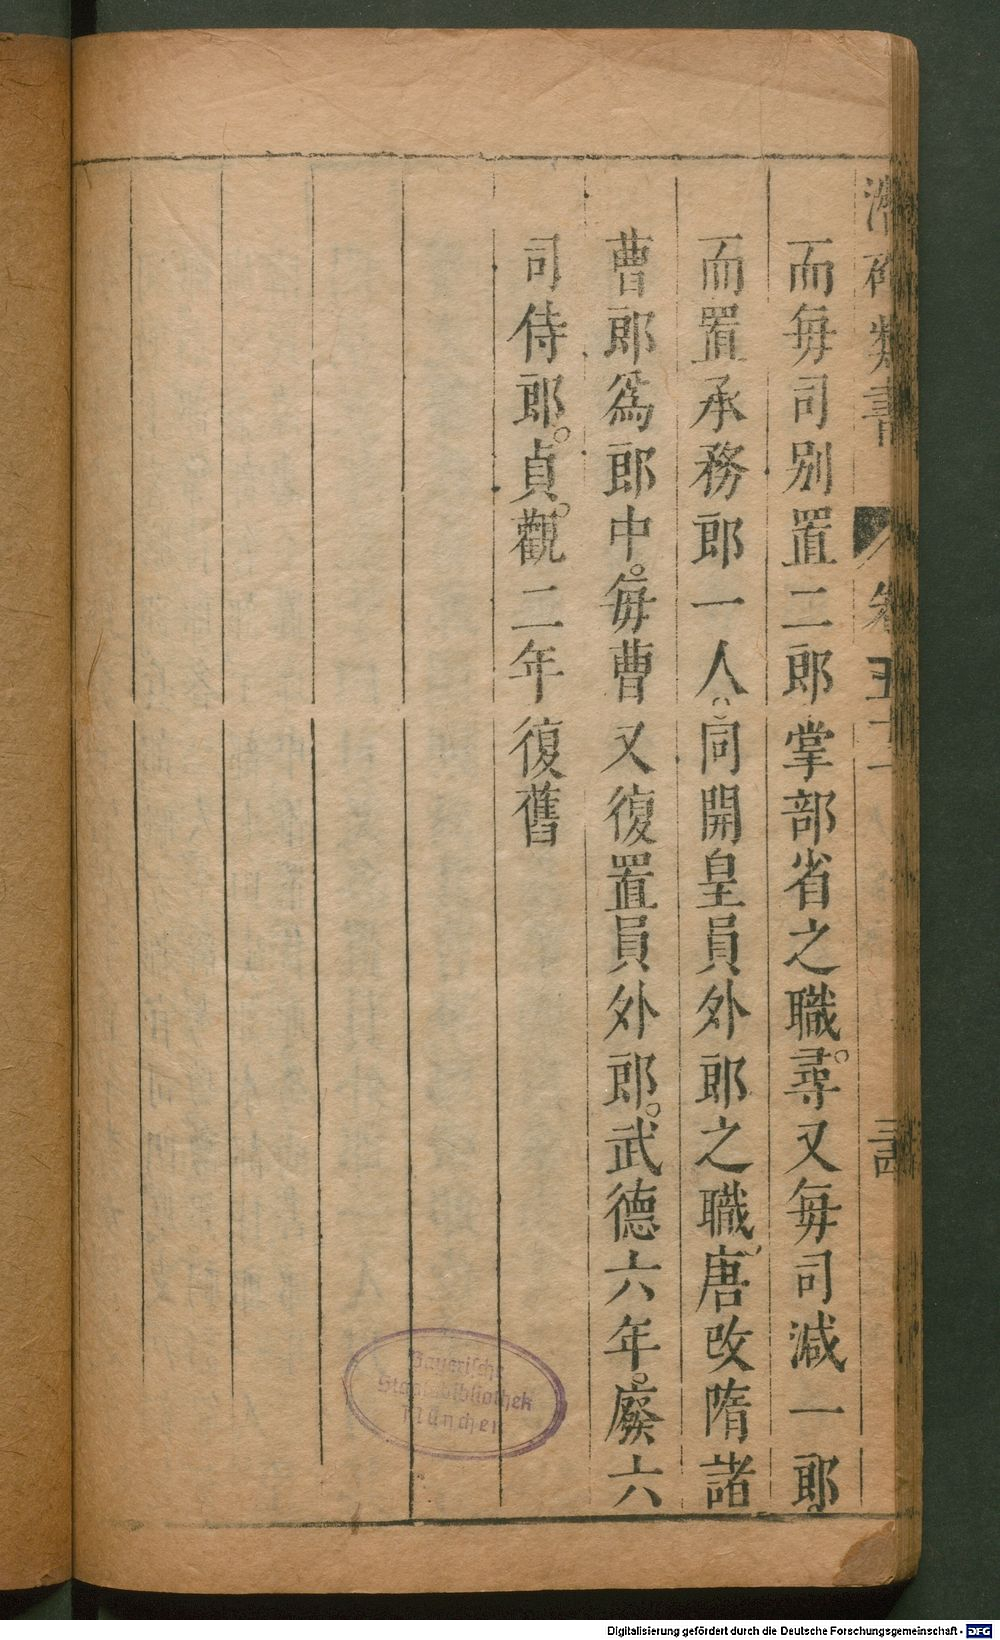 類書 卷五十一
而每司別置二郎掌部省之職尋又每司減一郎
而置承務郎一人同開皇員外郎之職唐改隋諸
曹郎爲郎中每曹又復置員外郎武德六年廢六
司侍郎貞觀二年復舊
Bayerische
Staatsbibliothek
München
Digitalisierung gefördert durch die Deutsche Forschungsgemeinschaft - DFG